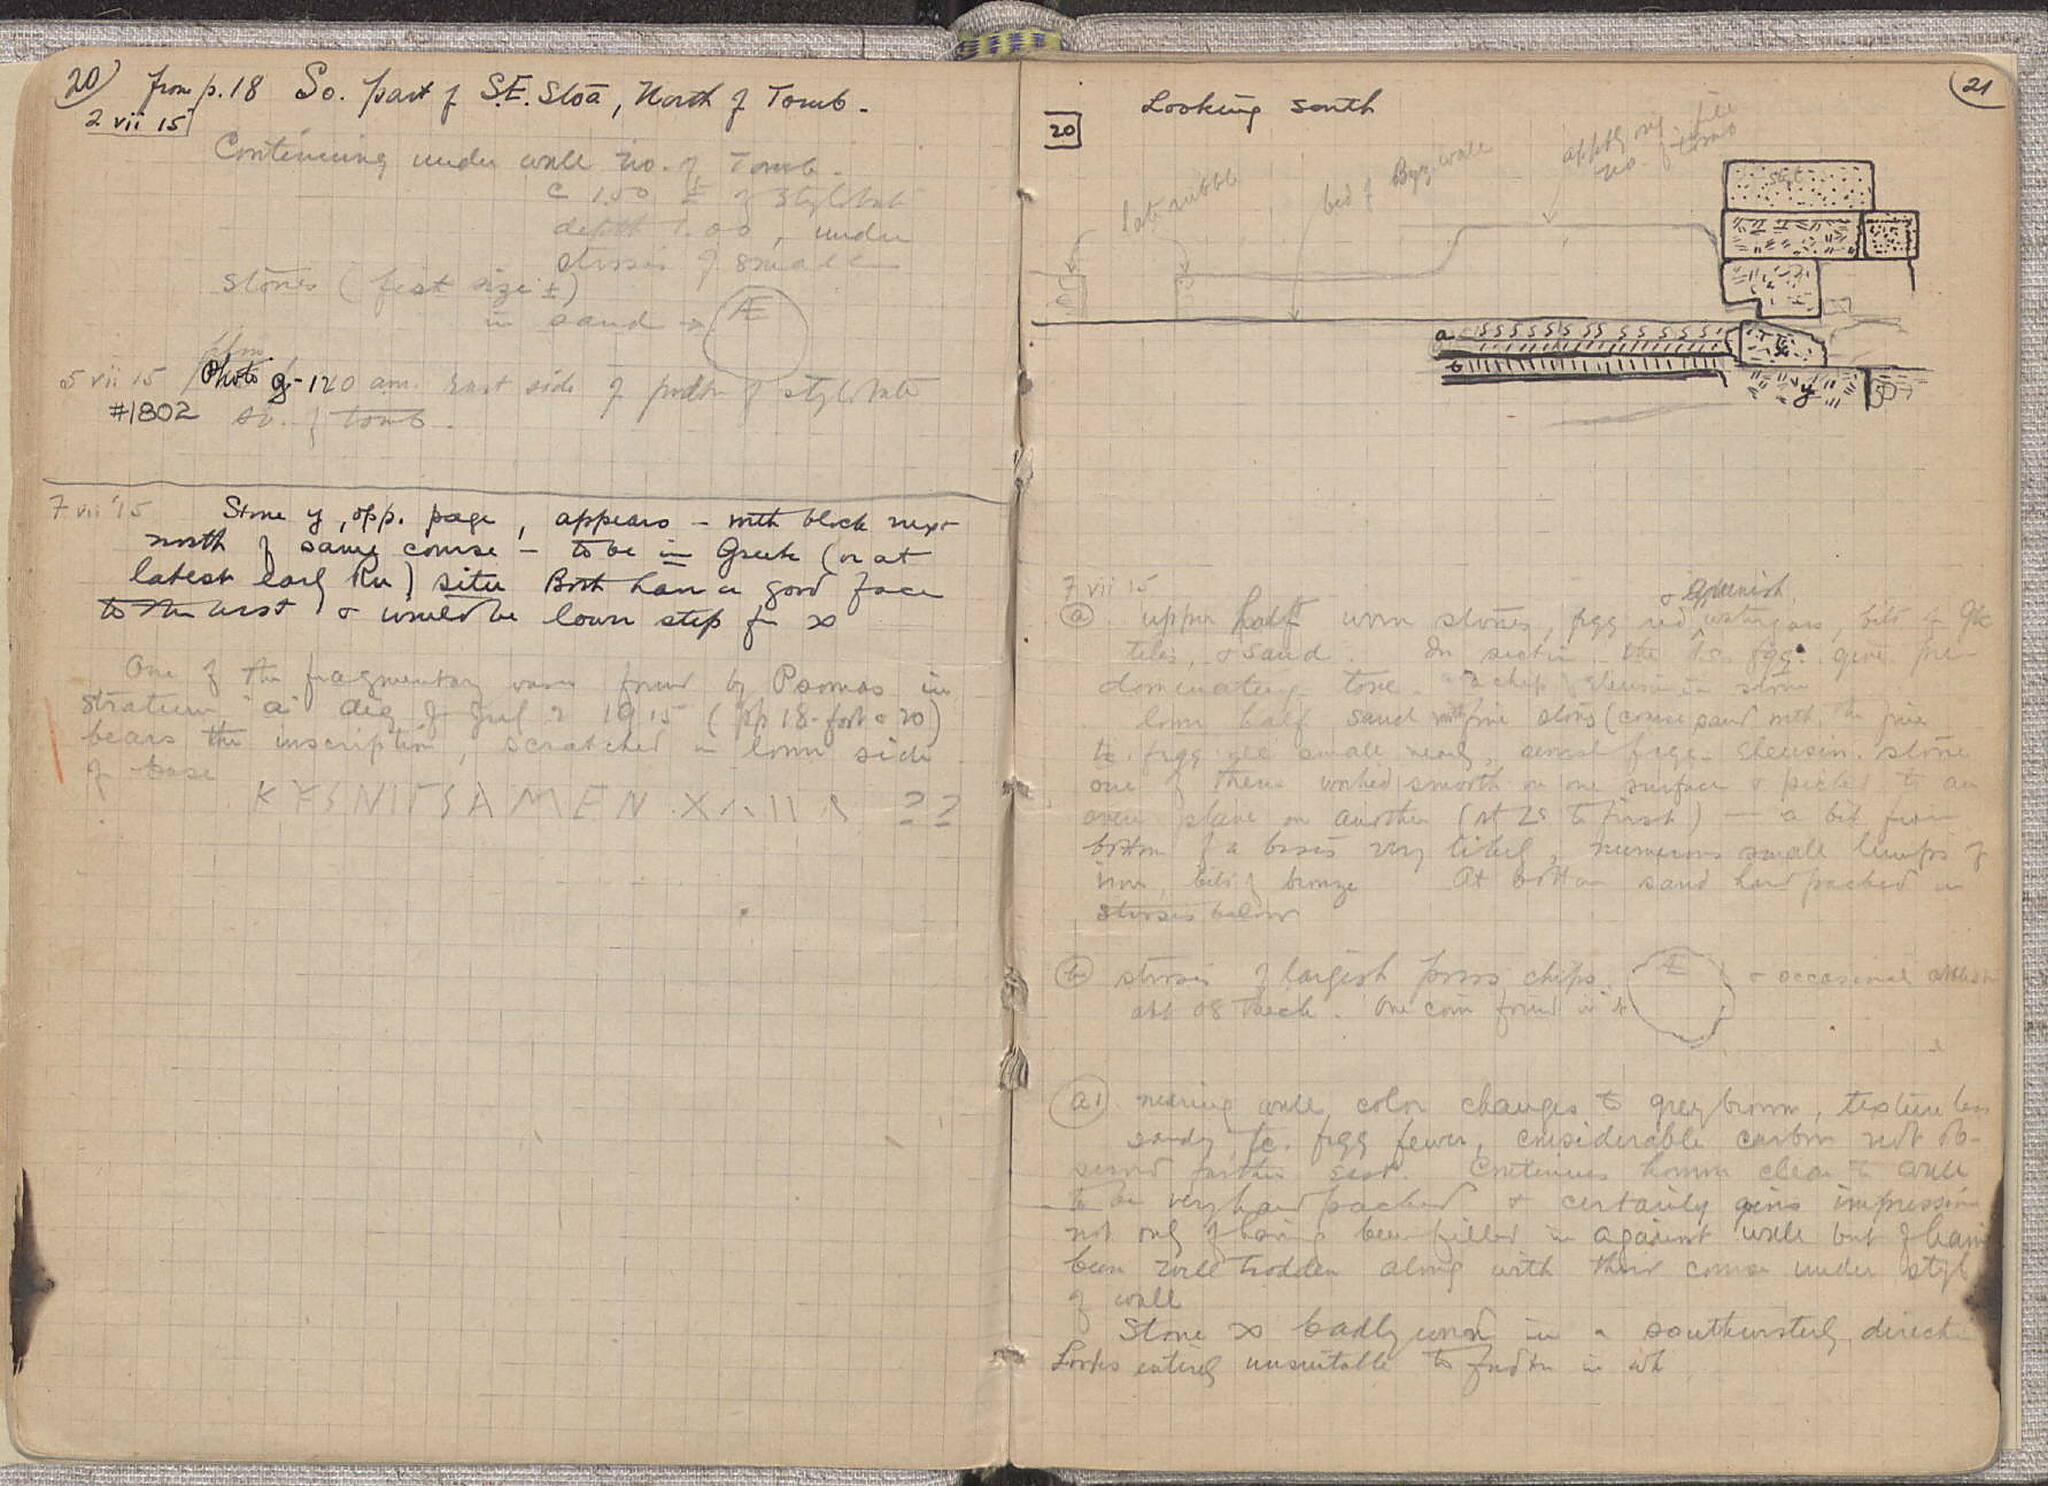 20 from p.18 So. part of S.E. Stoa, North of Tomb.
2 vii 15
Continuing under wall no. of Tomb.
c 1.50 E of Stylobate
depth 1.00, under
strosis of small
stones (fist size ±)
in sand → Æ
5 vii 15 Photo g-120 am. East side of fndtn of stylobate
#1802 so. of tomb.
7 vii '15 Stone y, opp. page, appears – with block next
north of same course – to be in Greek (or at
latest early Rn) situ Both have a good face
to the west & would be lower step for x
One of the fragmentary vases found by Psomas in
stratum "a" dig of Jul 2 1915 (pp 18-foot & 20)
bears the inscription, scratched on lower side
of base
??
21
20 Looking south
late rubble
bed of Byz. wall
no. of tomb
styl
a
b
x
y
7 vii 15
& greenish
(a) upper half worn stones, fgg red, bits of Gk
tiles, & sand. In section the t.c. fgg. give pre-
dominating tone. a chip Eleusin. stone
lower half sand with fine stones (coarse sand with the fine
tc. fragg all small nearly, several frgg. Eleusin. stone
one of them worked smooth on one surface & picked to an
even plane on another (at Ls to first) – a bit from
bottom of a basis very likely, numerous small lumps of
iron, bits of bronze At bottom sand hard packed in
strosis below
(b) strosis of largish poros chips. Æ & occasional
abt 08 thick. One coin found in it
(a1) nearing wall color changes to grey brown, texture less
sandy, tc. frgg fewer, considerable carbon not ob-
served farther east. Continues however clear to wall
to be very hard packed & certainly gives impression
not only of having been filled in against wall but of having
been well trodden along with third course under styl
of wall
Stone x badly worn in a southwesterly direct
Looks entirely unsuitable to fndtn in wh